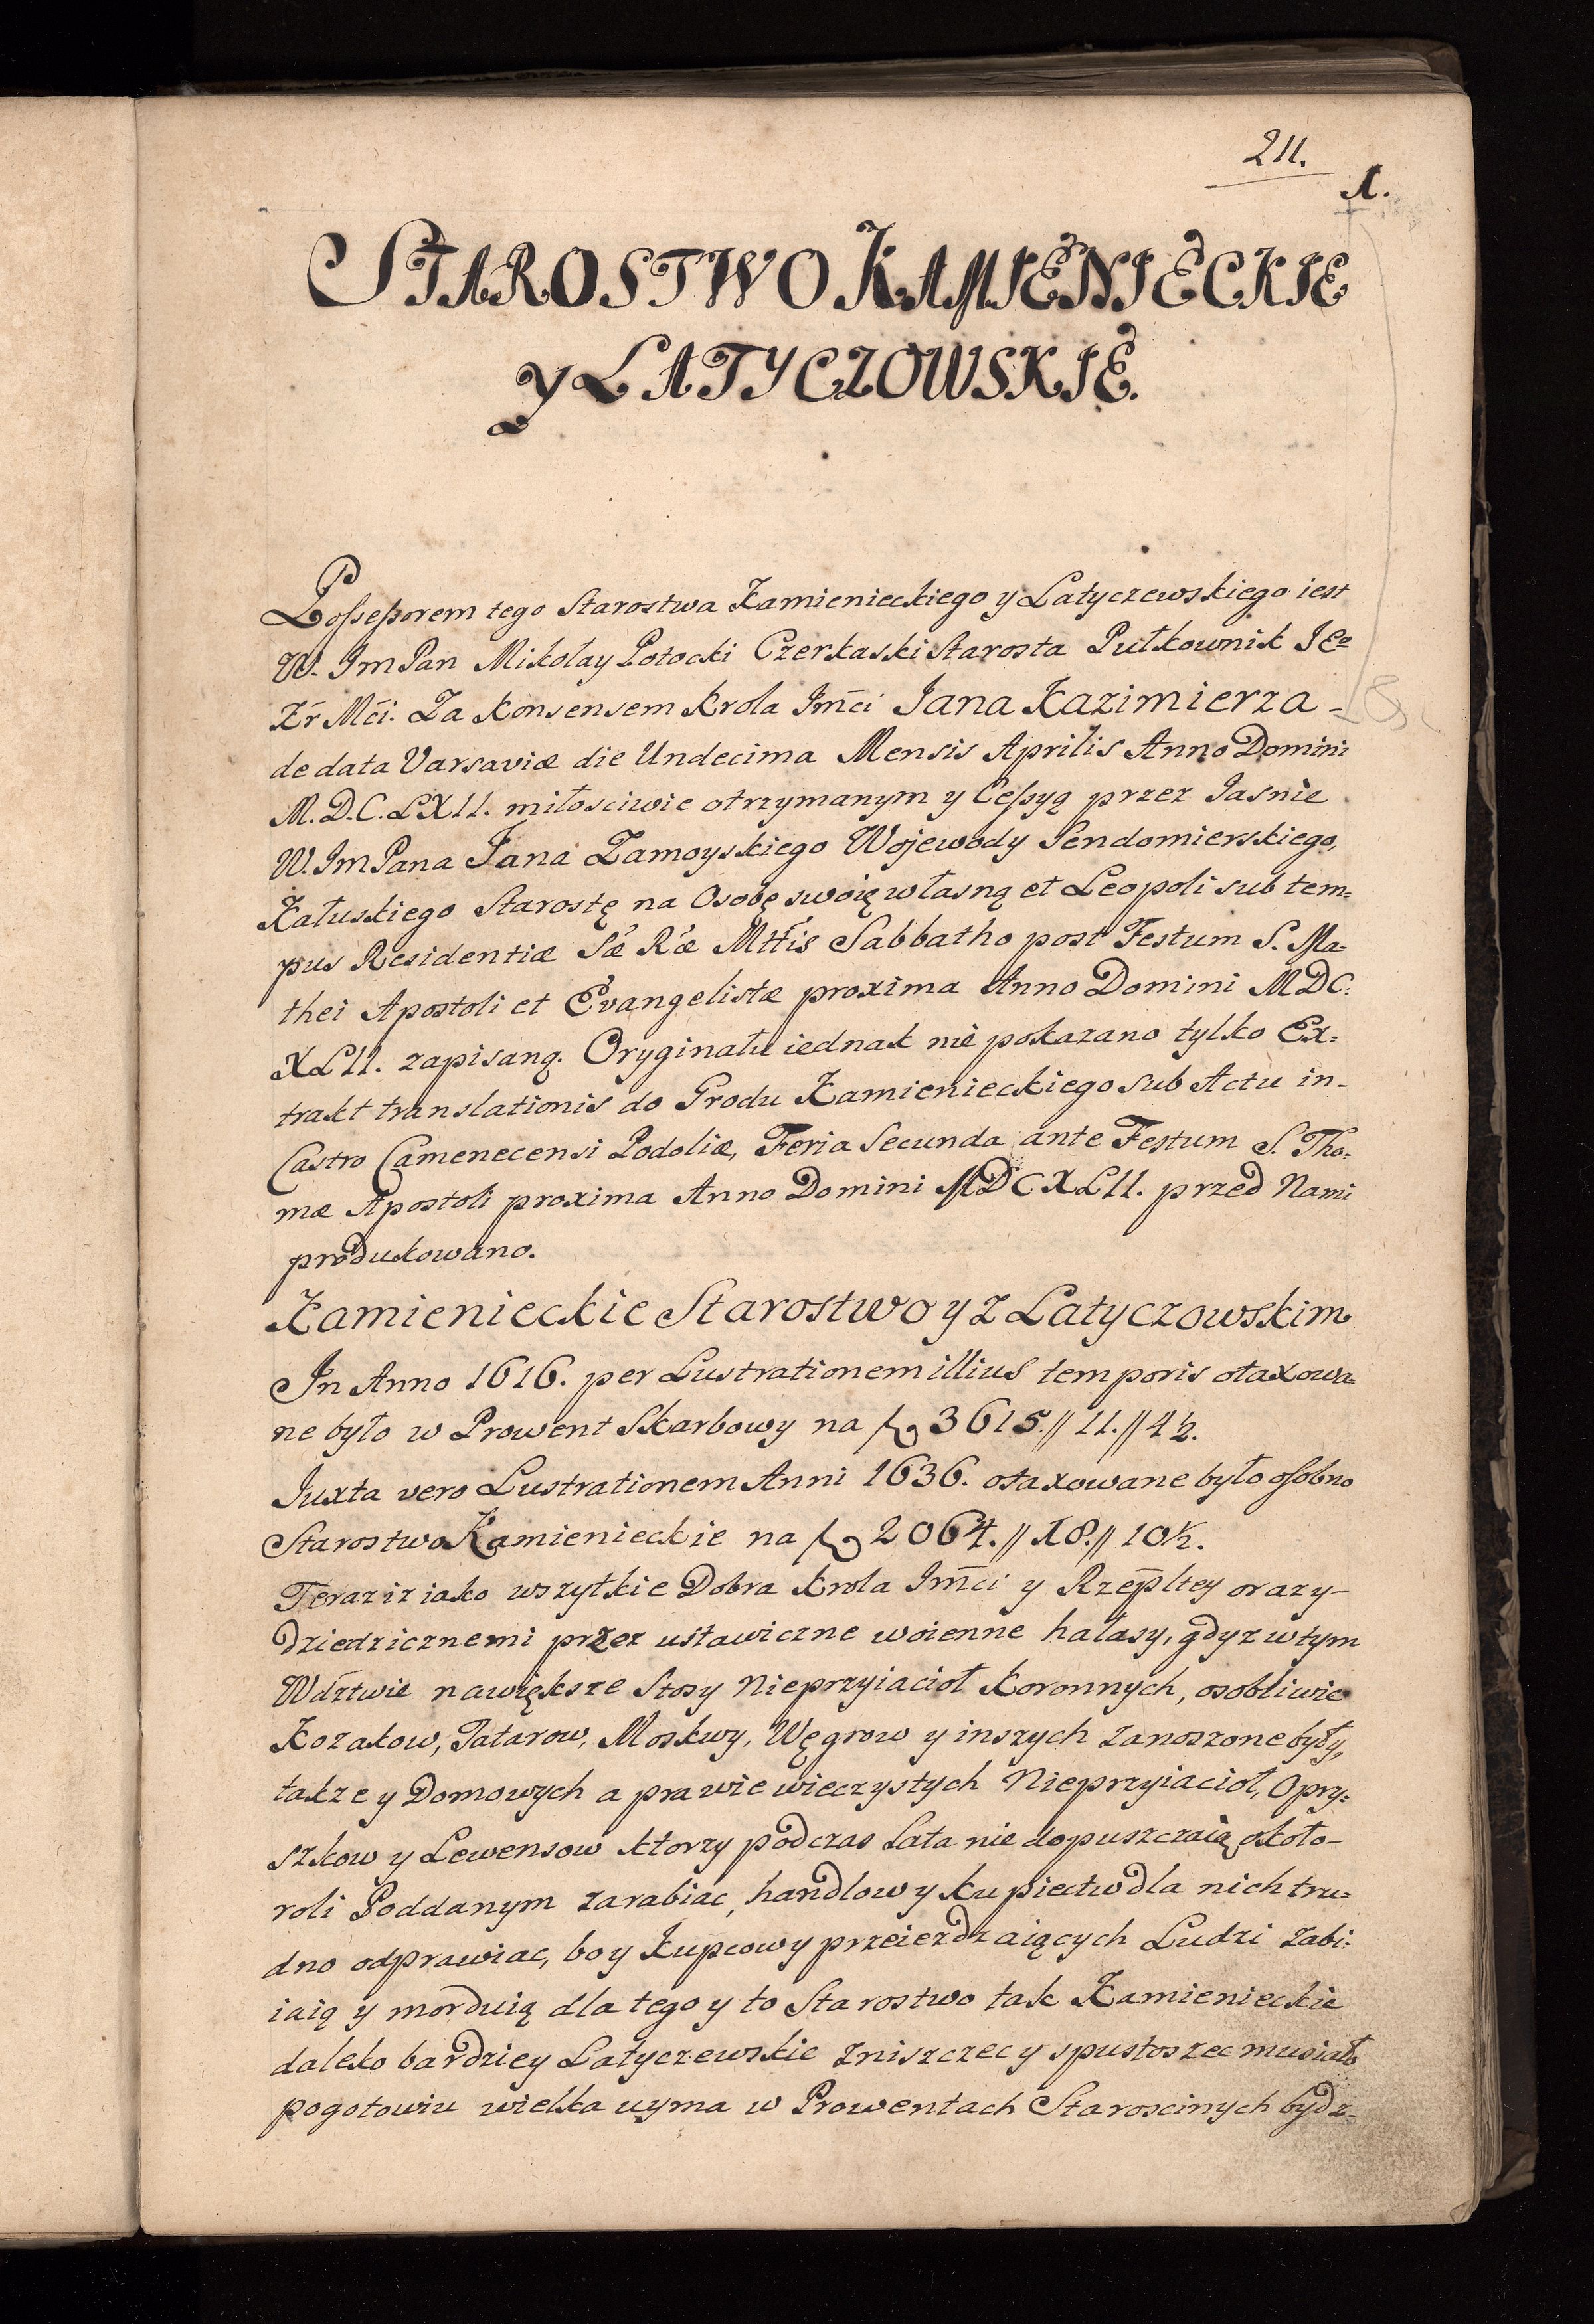 211.
1.
STAROSTWO KAMIENIECKIE
y LATYCZOWSKIE.
Possessorem tego Starostwa Kamienieckiego y Latyczewskiego iest
W. Im Pan Mikołay Potocki Czerkaski Starosta Pułkownik IEo
Kr Mci: Za Konsensem Krola Imci Iana Kazimierza -
de data Varsaviæ die Undecima Mensis Aprilis Anno Domini
M.D.C.LXII. miłosciwie otrzymanym y Cessyą przez Iasnie
W. Im Pana Jana Zamoyskiego Wojewody Sendomierskiego,
Kałuskiego Starostę na Osobę swoię własną et Leopoli sub tem=
pus Residentiæ Sæ Ræ Mttis Sabbatho post Festum S. Ma=
thei Apostoli et Evangelistæ proxima Anno Domini MDC:
XLII. zapisaną. Oryginału iednak nie pokazano tylko Ex=
trakt translationis do Grodu Kamienieckiego sub Actu in-
Castro Camenecensi Podoliæ, Feria Secunda ante Festum S. Tho=
mæ Apostoli proxima Anno Domini MDCXLII. przed Nami
produkowano.
Kamienieckie Starostwo y z Latyczowskim
In Anno 1616. per Lustrationem illius temporis otaxowa=
ne było w Prowent Skarbowy na fl 3615.//11.//4½.
Iuxta vero Lustrationem Anni 1636. otaxowane było osobno
Starostwo Kamienieckie na fl 2064.//18.//10½.
Teraz iz iako wszytkie Dobra Krola Imci y Rzepltey oraz y-
dziedzicznemi przez ustawiczne woienne hałasy, gdyz w tym
Wdztwie nawiększe Stosy Nieprzyiacioł Koronnych, osobliwie
Kozakow, Tatarow, Moskwy, Węgrow y inszych zanoszone były,
takze y Domowych a prawie wieczystych Nieprzyiacioł, Opry=
szkow y Lewensow ktorzy podczas Lata nie dopuszczaią około-
roli Poddanym zarabiac, handlow y kupiectw dla nich tru=
dno odprawiac, bo y Kupcow y przeiezdzaiących Ludzi zabi=
iaią y morduią dla tego y to Starostwo tak Kamienieckie
daleko bardziey Latyczewskie zniszczec y spustoszec musiało
pogotowiu wielka uyma w Prowentach Staroscinych bydz-